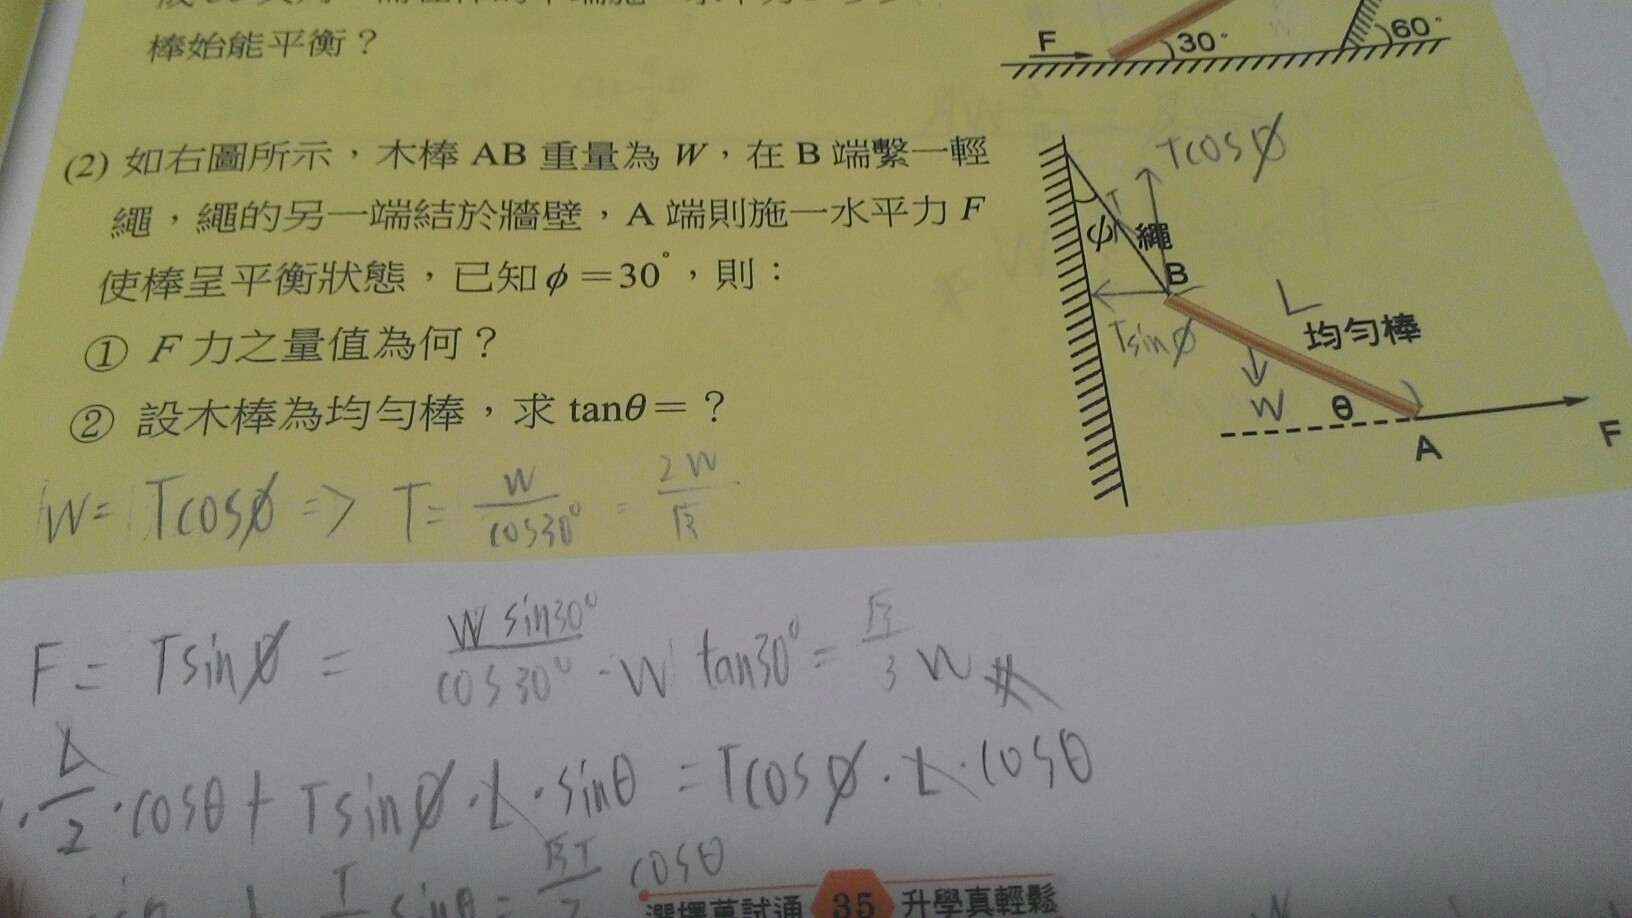 棒始能平衡？
F
30°
60°
(2) 如右圖所示，木棒 AB 重量為 W，在 B 端繫一輕
繩，繩的另一端結於牆壁，A 端則施一水平力 F
使棒呈平衡狀態，已知 ϕ＝30°，則：
① F 力之量值為何？
② 設木棒為均勻棒，求 tanθ＝？
Tcosϕ
T
ϕ
繩
B
L
Tsinϕ
均勻棒
W
θ
A
F
W = Tcosϕ => T = W/cos30° = 2W/√3
F = Tsinϕ = W sin30°/cos30° = W tan30° = √3/3 W #
L/2 · cosθ + Tsinϕ · L · sinθ = Tcosϕ · L · cosθ
T sinθ = √3T/2 cosθ
選擇萬試通 35 升學真輕鬆